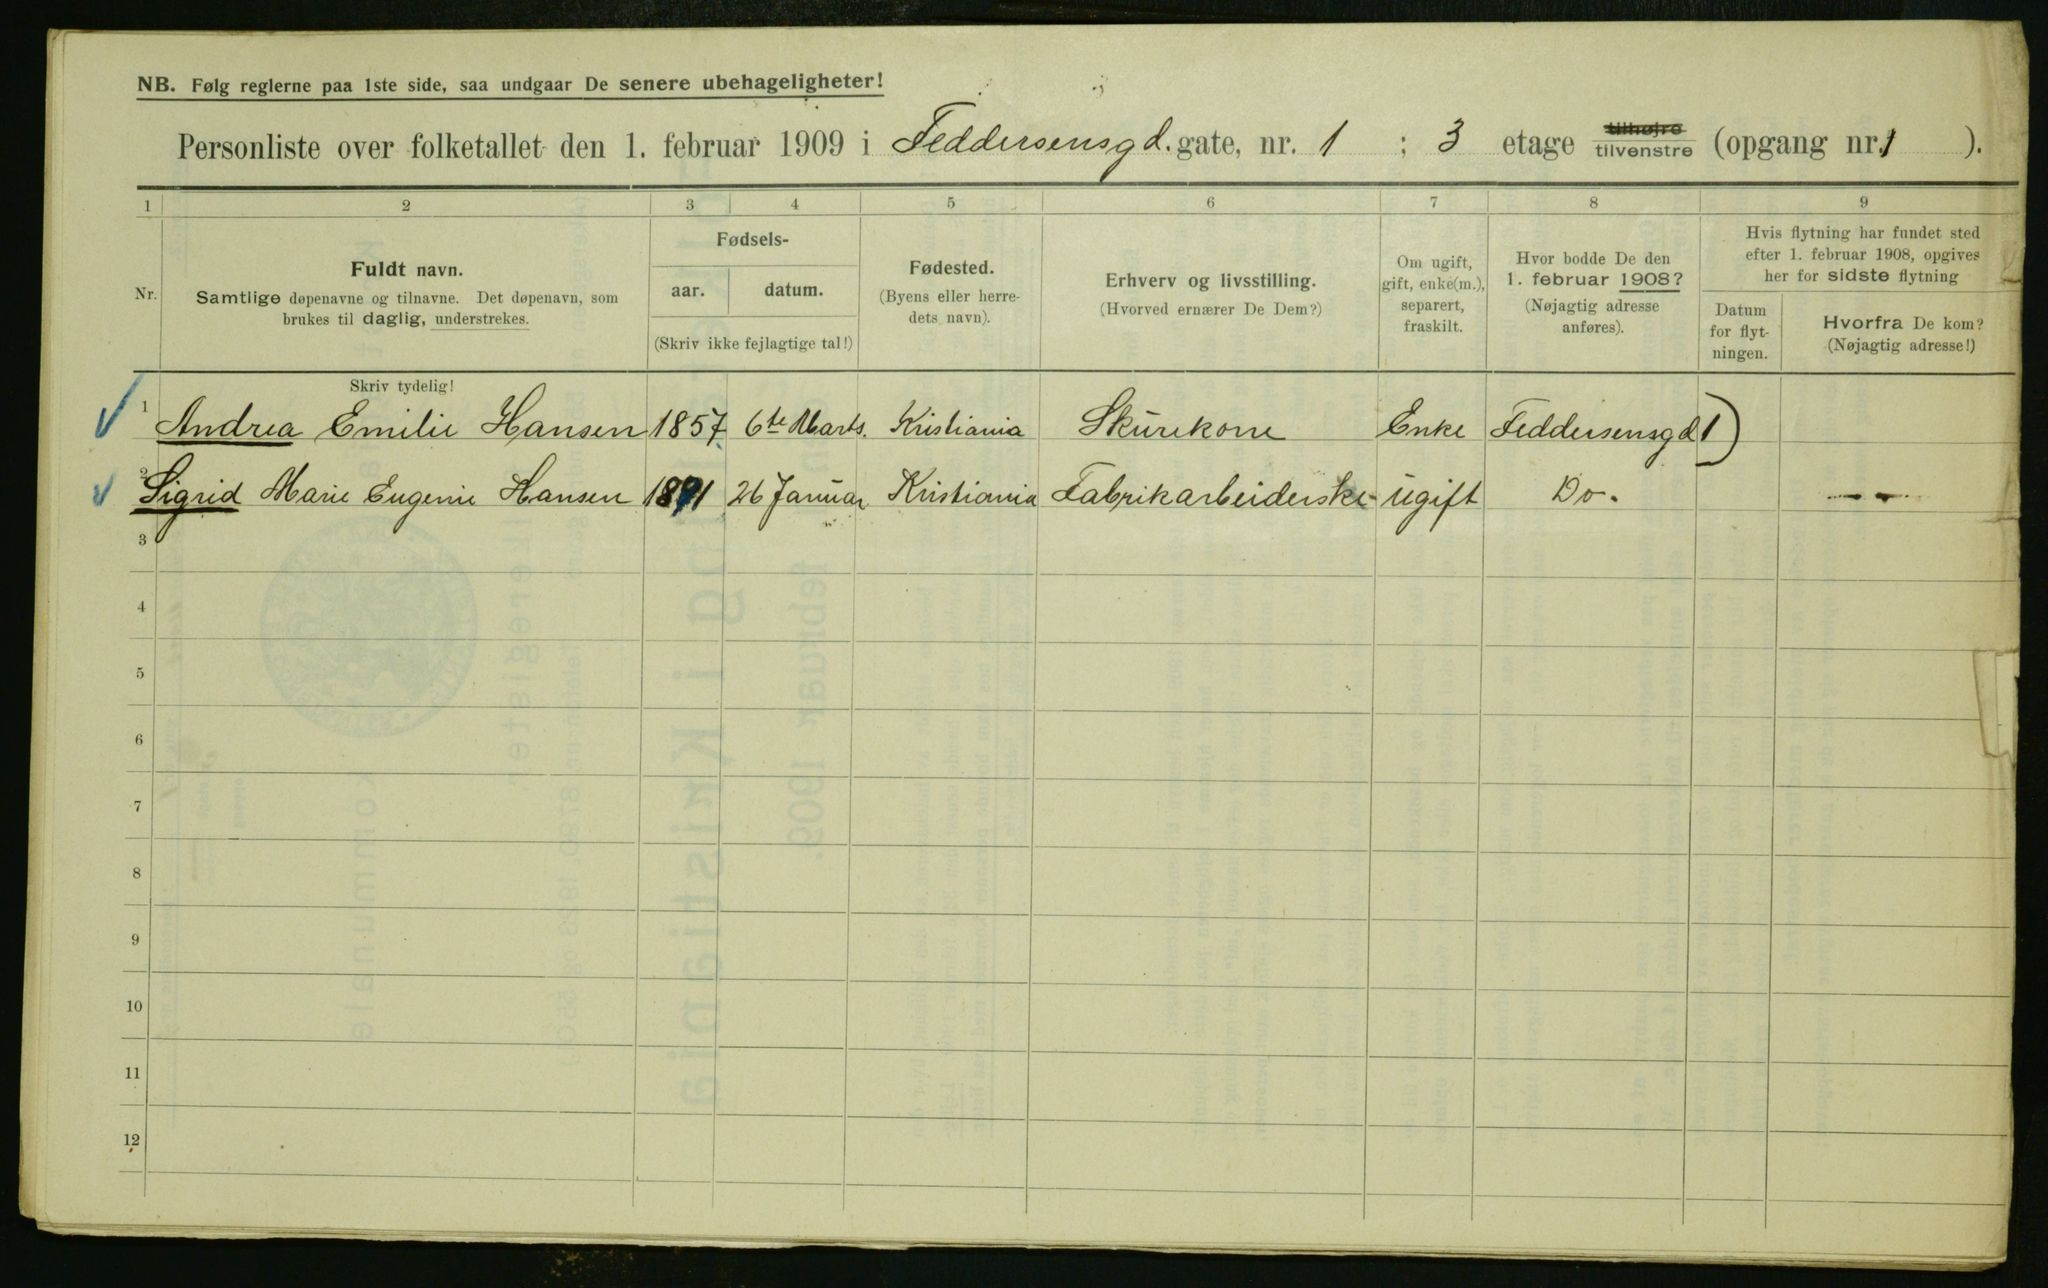 NB. Følg reglerne paa 1ste side, saa undgaar De senere ubehageligheter!
Personliste over folketallet den 1. februar 1909 i Feddersensgd. gate, nr. 1 ; 3 etage tilhøjre tilvenstre (opgang nr. 1 ).
1 2 3 4 5 6 7 8 9
Nr.
Fuldt navn.
Samtlige døpenavne og tilnavne. Det døpenavn, som
brukes til daglig, understrekes.
Fødsels-
aar. datum.
(Skriv ikke fejlagtige tal!)
Fødested.
(Byens eller herre-
dets navn).
Erhverv og livsstilling.
(Hvorved ernærer De Dem?)
Om ugift,
gift, enke(m.),
separert,
fraskilt.
Hvor bodde De den
1. februar 1908?
(Nøjagtig adresse
anføres).
Hvis flytning har fundet sted
efter 1. februar 1908, opgives
her for sidste flytning
Datum
for flyt-
ningen.
Hvorfra De kom?
(Nøjagtig adresse!)
Skriv tydelig!
1 Andrea Emilie Hansen 1857 6te Marts. Kristiania Skurekone Enke Feddersensgd 1)
2 Sigrid Marie Eugenie Hansen 1891 26 Januar Kristiania Fabrikarbeiderske ugift Do. —
3
4
5
6
7
8
9
10
11
12